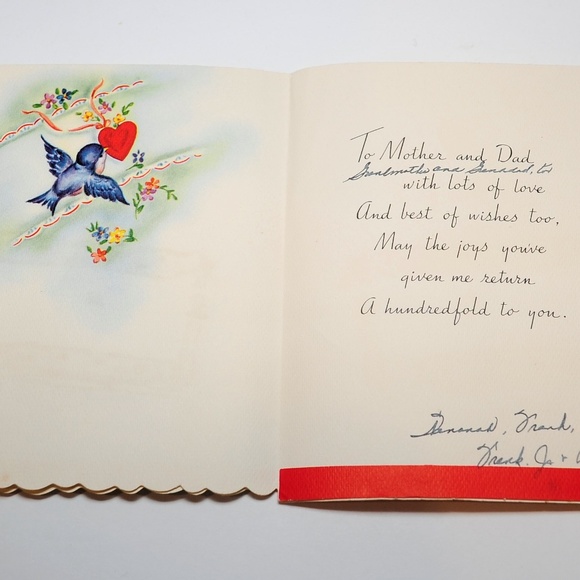 To Mother and Dad
and
with lots of love
And best of wishes too,
May the joys you've
given me return
A hundredfold to you.
Frank,
Frank. Jr +